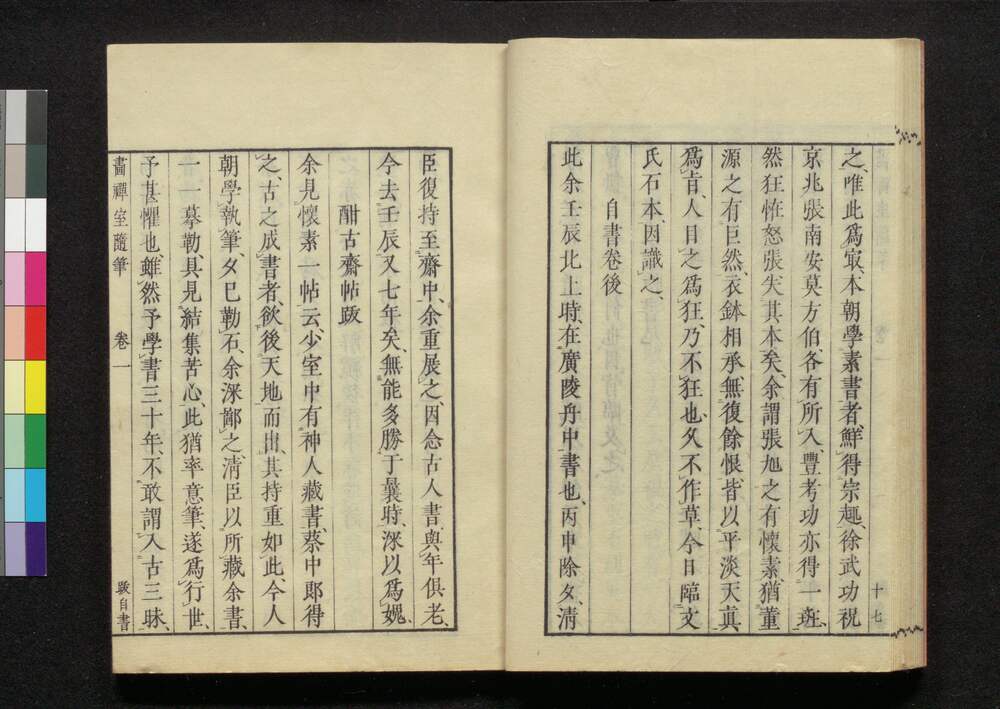 十七
之、唯此爲㝡、本朝學素書者鮮得宗趣、徐武功祝
京兆張南安莫方伯、各有所入、豐考功亦得一班、
然狂恠怒張失其本矣、余謂張旭之有懷素、猶董
源之有巨然、衣鉢相承無復餘恨、皆以平淡天眞
爲旨、人目之爲狂、乃不狂也、久不作草、今日臨文
氏石本、因識之、
自書卷後
此余壬辰北上時、在廣陵舟中書也、丙申除夕、淸
臣復持至齋中、余重展之、因念古人書、與年俱老、
今去壬辰又七年矣、無能多勝于曩時、深以爲媿、
酣古齋帖跋
余見懷素一帖云、少室中有神人藏書、蔡中郞得
之、古之成書者、欲後天地而出、其持重如此、今人
朝學執筆、夕已勒石、余深鄙之、淸臣以所藏余書、
一一摹勒、具見結集苦心、此猶率意筆、遂爲行世、
予甚懼也、雖然予學書三十年、不敢謂入古三昧、
畫禪室隨筆 卷一 跋自書